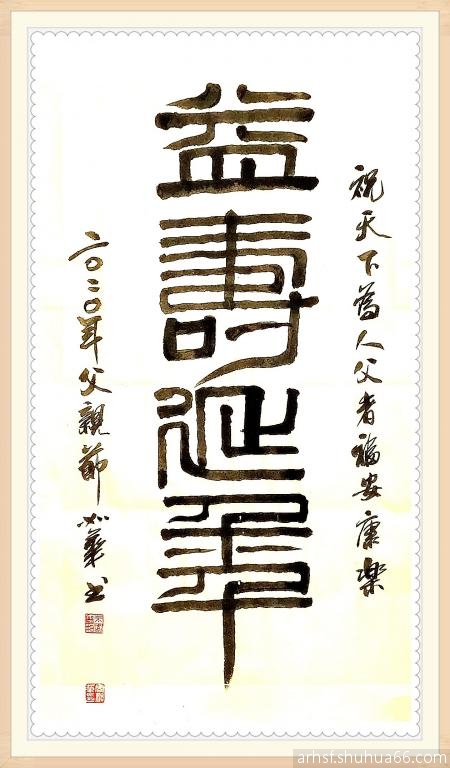 祝天下為人父者福安康樂
益壽延年
二〇二〇年父親節 華書
arhsf.shuhua66.com